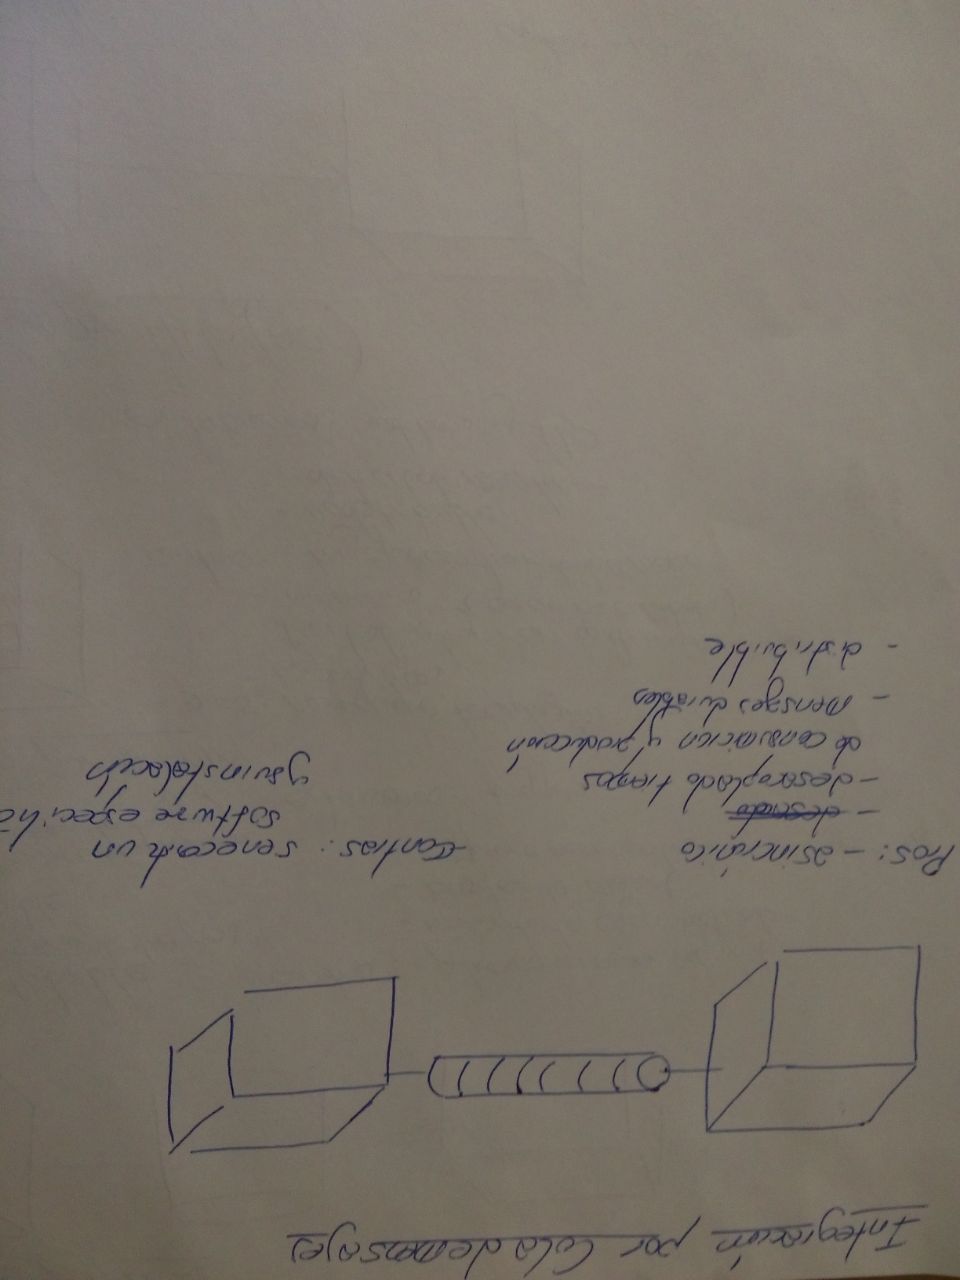 Integración por Cola de mensajes
Pros: - asincrónico
-
- desacoplado tiempos
de consumición y producción
- Mensajes durables
- distribuible
- Contras: se necesita un
software específic
y su instalación